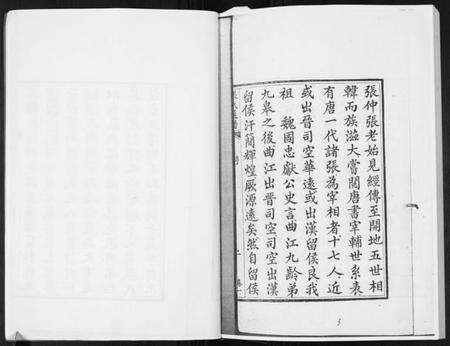 張仲張老始見經傳至開地五世相
韓而族滋大嘗閱唐書宰輔世系表
有唐一代諸張為宰相者十七人近
或出晉司空華遠或出漢留侯良我
祖 魏國忠獻公史言曲江九齡弟
九皋之後曲江出晉司空司空出漢
留侯汗簡輝煌厥源遠矣然自留侯